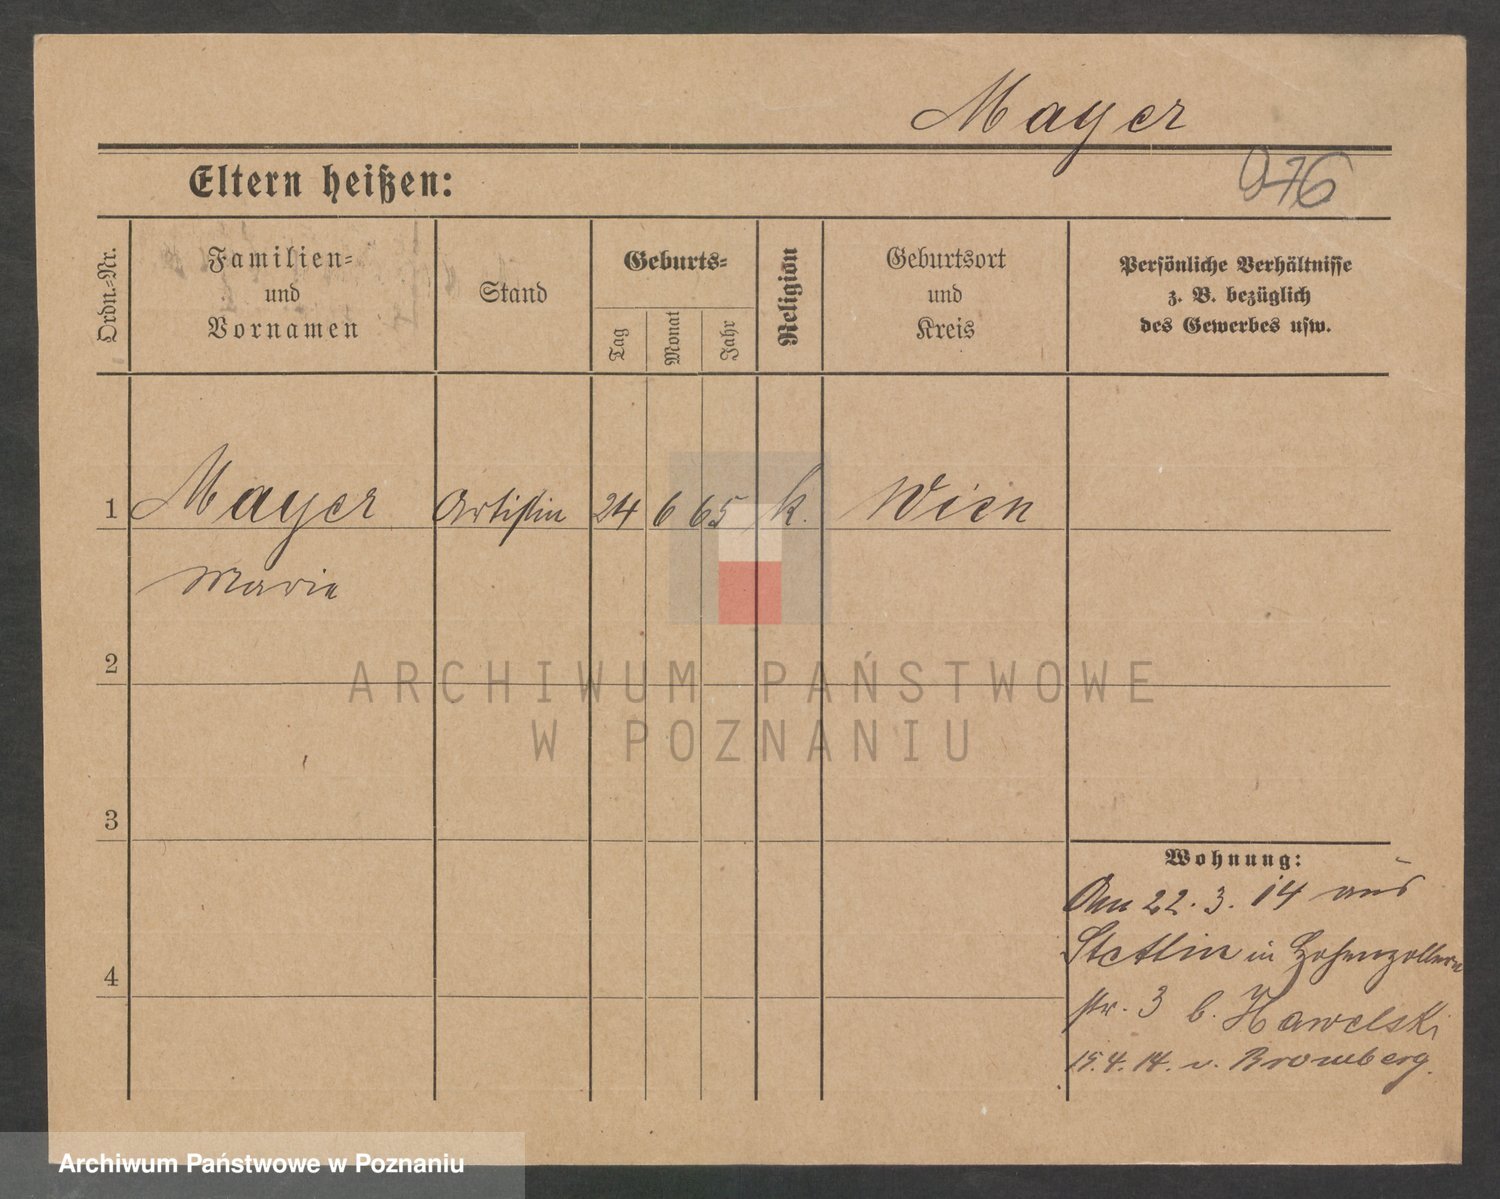 Mayer
976
Eltern heißen:
Ordn.-Nr.
Familien-
und
Vornamen
Stand
Geburts-
Tag
Monat
Jahr
Religion
Geburtsort
und
Kreis
Persönliche Verhältnisse
z. B. bezüglich
des Gewerbes usw.
1 Mayer Artistin 24 6 65 k. Wien
Marie
2
ARCHIWUM PAŃSTWOWE
W POZNANIU
3
Wohnung:
Am 22.3.14 aus
Stettin in Hohenzollern
str. 3 b. Hawelski
15.4.14. n. Bromberg.
4
Archiwum Państwowe w Poznaniu